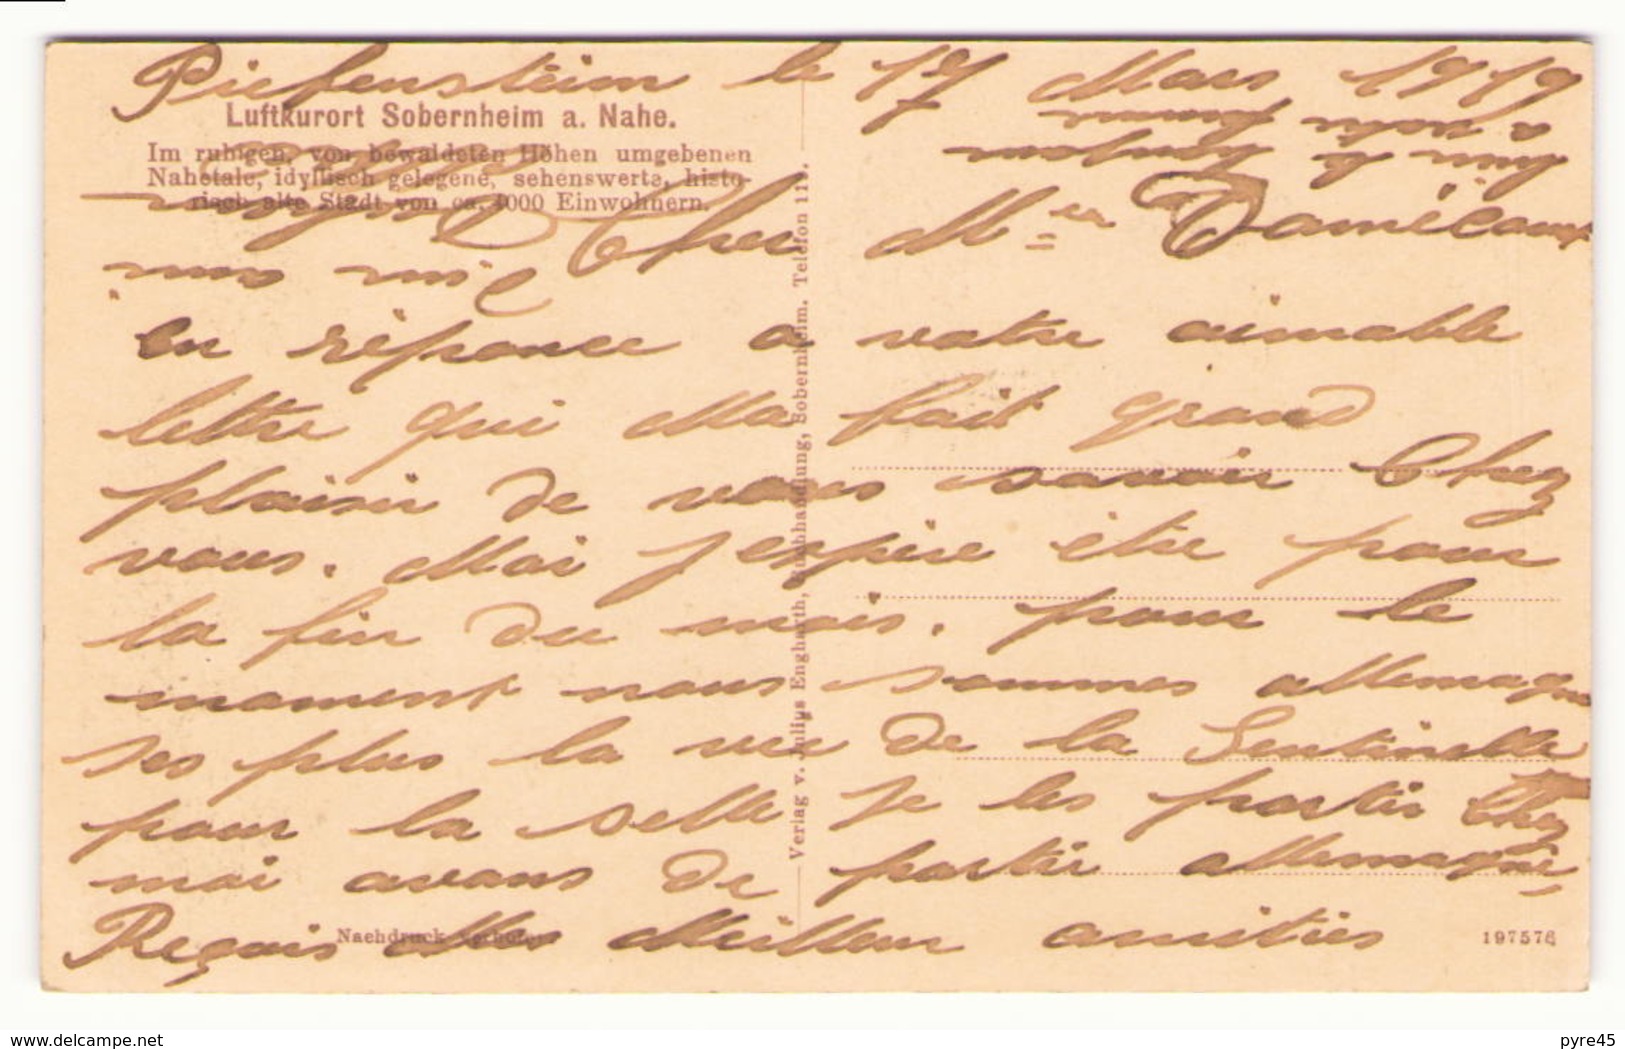 Piefenstein le 17 Mars 1919
Luftkurort Sobernheim a. Nahe.
Im ruhigen, von bewaldeten Höhen umgebenen
Nahetale, idyllisch gelegene, sehenswerte, histo-
risch alte Stadt von ca. 4000 Einwohnern.
Cher
en réponce a votre aimable
lettre qui Ma fait grand
plaisir de vous savoir Chez
vous. Moi J espère être pour
la fin du mois. pour le
moment nous sommes allemagne
ses plus la vie de la Sentinelle
pour la selle Je les partir Chez
moi avans de partir allemagne,
Reçois Mes Meilleur amitiés
Nachdruck verboten
197576
Verlag v. Julius Engbarth, Buchhandlung, Sobernheim. Telefon 119.
www.delcampe.net
pyre45